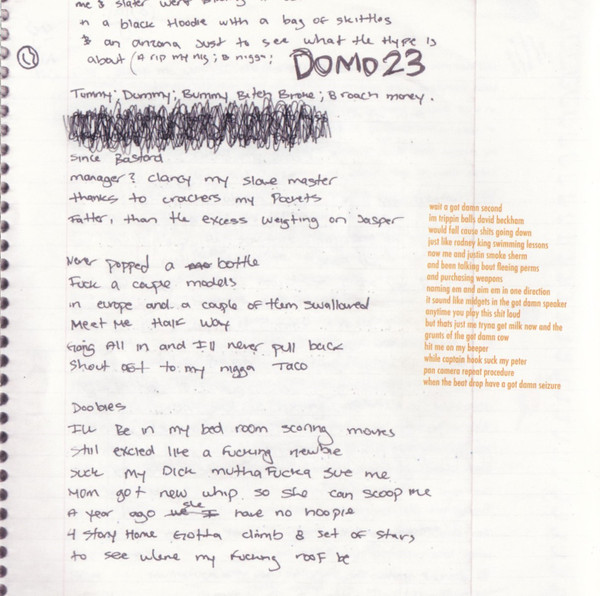 in a black Hoodie with a bag of skittles
& an arizona Just to see what the Hype is
about (A rip my nig; B nigga;
DOMO23
Tummy; Dummy; Bummy Bitch Broke; B roach money.
Since Bastard
manager? clancy my slave master
thanks to crackers my Pockets
Fatter, than the excess weighting on Jasper
Never popped a bottle
Fuck a couple models
in europe and a couple of them swallowed
Meet Me Half Way
Going All in and I'll never pull back
Shout out to my nigga Taco
Doobies
I'll Be in my bed room scoring movies
Still excied like a Fucking newbie
Suck my Dick mutha Fucka sue me
Mom got new whip so she can scoop me
A year ago she have no hoopie
4 Story Home Gotta climb 8 set of stairs
to see where my Fucking roof be
wait a got damn second
im trippin balls david beckham
would fall cause shits going down
just like rodney king swimming lessons
now me and justin smoke sherm
and been talking bout fleeing perms
and purchasing weapons
naming em and aim em in one direction
it sound like midgets in the got damn speaker
anytime you play this shit loud
but thats just me tryna get milk now and the
grunts of the got damn cow
hit me on my beeper
while captain hook suck my peter
pan camera repeat procedure
when the beat drop have a got damn seizure